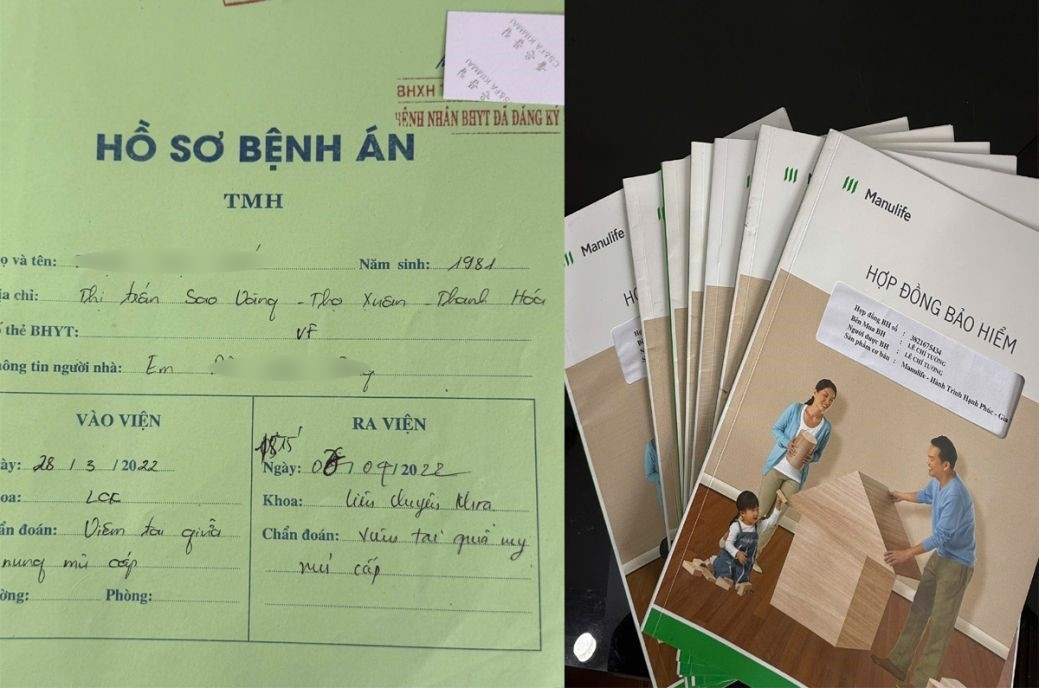 BHXH
BỆNH NHÂN BHYT ĐÃ ĐĂNG KÝ
HỒ SƠ BỆNH ÁN
TMH
ọ và tên:
Năm sinh: 1981
ịa chỉ: Thị trấn Sao Vàng - Thọ Xuân - Thanh Hóa
ố thẻ BHYT: VF
hông tin người nhà: Em
VÀO VIỆN
ày: 28 / 3 / 2022
oa: LCK
ẩn đoán: Viêm tai giữa
nung mủ cấp
ường: Phòng:
RA VIỆN
Ngày: /04/2022
Khoa: Liên chuyên khoa
Chẩn đoán: Viêm tai giữa
mủ cấp
Manulife
Manulife
HỢP ĐỒNG BẢO HIỂM
Hợp đồng BH số : 3821675434
Bên Mua BH : LÊ CHÍ TƯỜNG
Người được BH : LÊ CHÍ TƯỜNG
Sản phẩm cơ bản : Manulife - Hành Trình Hạnh Phúc - Gia